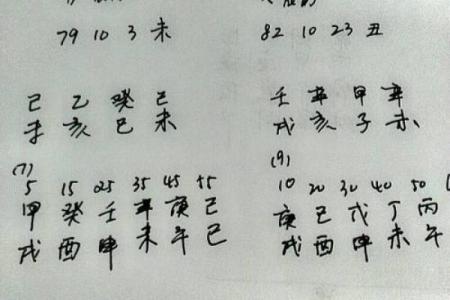 79 10 3 未
82 10 23 丑
己 乙 癸 己
未 亥 巳 未
壬 辛 甲 辛
戌 亥 子 未
(7)
5 15 25 35 45 55
甲 癸 壬 辛 庚 己
戌 酉 申 未 午 巳
(9)
10 20 30 40 50
庚 己 戊 丁 丙
戌 酉 申 未 午